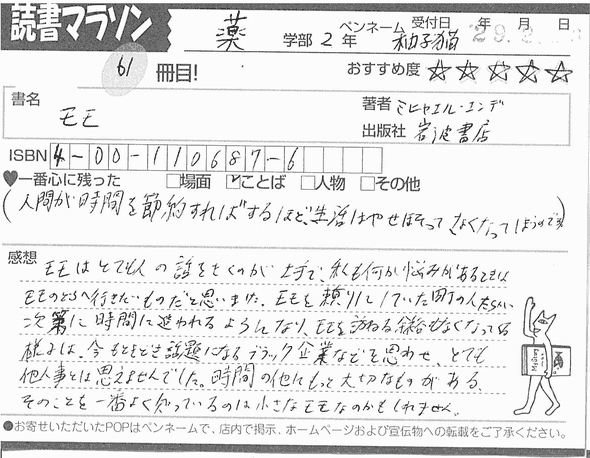 読書マラソン
薬 学部 2 年 ペンネーム 柚子猫 受付日 29.2. 年 月 日
61 冊目! おすすめ度 ☆☆☆☆☆
書名 モモ
著者 ミヒャエル・エンデ
出版社 岩波書店
ISBN 4-00-110687-6
♥一番心に残った □場面 ☑ことば □人物 □その他
(人間が時間を節約すればするほど、生活はやせほそって、なくなってしまうのです)
感想
モモはとても人の話をきくのが上手で、私も何か悩みがあるときは
モモのところへ行きたいものだと思いました。モモを頼りにしていた町の人たちが、
次第に時間に追われるようになり、モモを訪ねる余裕もなくなっている
様子は、今もときどき話題になるブラック企業などを思わせ、とても
他人事とは思えませんでした。時間の他にもっと大切なものがある、
そのことを一番よく知っているのは小さなモモなのかもしれません。
●お寄せいただいたPOPはペンネームで、店内で掲示、ホームページおよび宣伝物への転載をご了承ください。